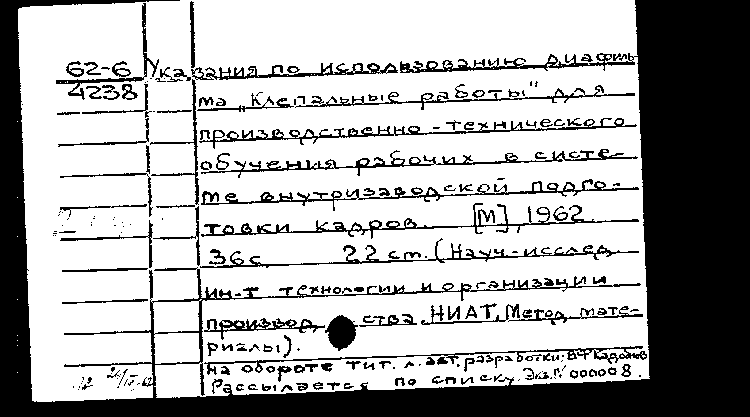 62-6 Указания по использованию диафиль-
4238 ма „Клепальные работы" для
производственно-технического
обучения рабочих в систе-
ме внутризаводской подго-
товки кадров. [М], 1962.
36с. 22 см. (Науч.-исслед.
ин-т технологии и организации
производства. НИАТ. Метод. мате-
риалы).
На обороте тит. л. авт. разработки:
Рассылается по списку. Экз.№ 000008.